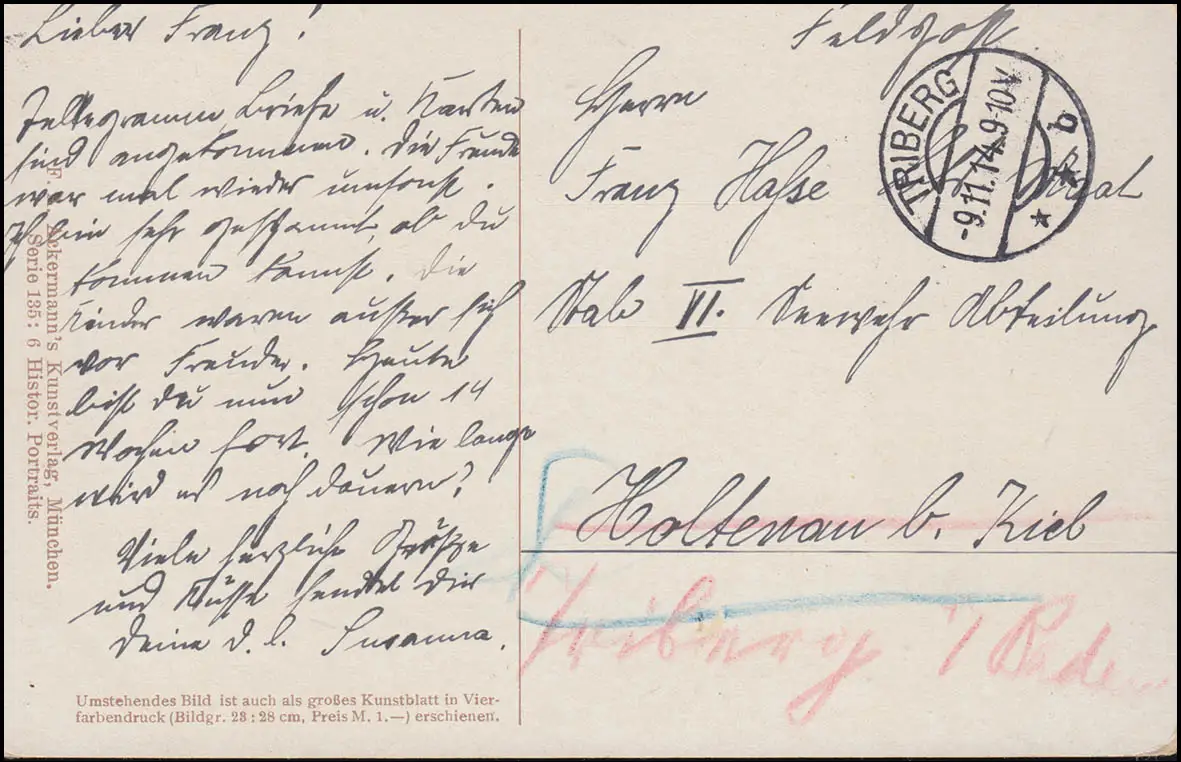 Lieber Franz!
Telegramm, Briefe u. Karten
sind angekommen. Die Freude
war mal wieder umsonst.
Ich bin sehr gespannt, ob du
kommen kannst. Die
Kinder waren außer sich
vor Freude. Heute
bist du nun schon 14
Wochen fort. Wie lange
wird es noch dauern?
Viele herzliche Grüße
und Küsse sendet Dir
Deine d. l. Susanna.
F. A. Ackermann's Kunstverlag, München.
Serie 135: 6 Histor. Portraits.
Umstehendes Bild ist auch als großes Kunstblatt in Vier-
farbendruck (Bildgr. 23 : 28 cm, Preis M. 1.—) erschienen.
Feldpost
TRIBERG
-9.11.14.9-10V
* b *
Herrn
Franz Hasse
Stab VI. Seewehr Abteilung
Holtenau b. Kiel
Triberg i/Baden